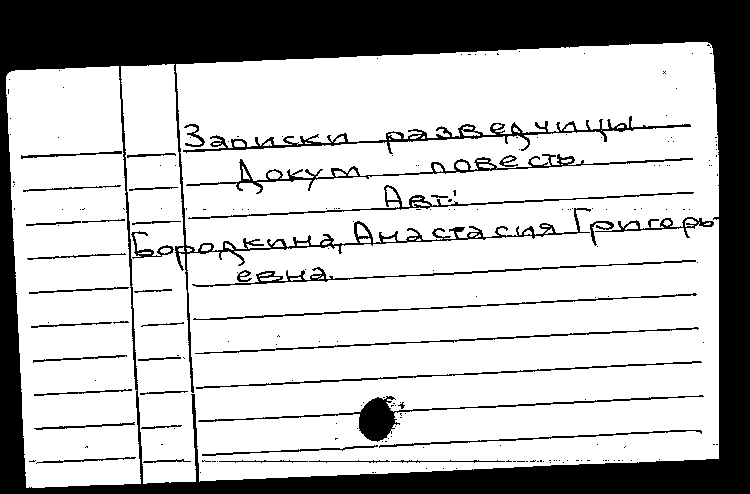 Записки разведчицы.
Докум. повесть.
Авт.:
Бородкина, Анастасия Григорь-
евна.